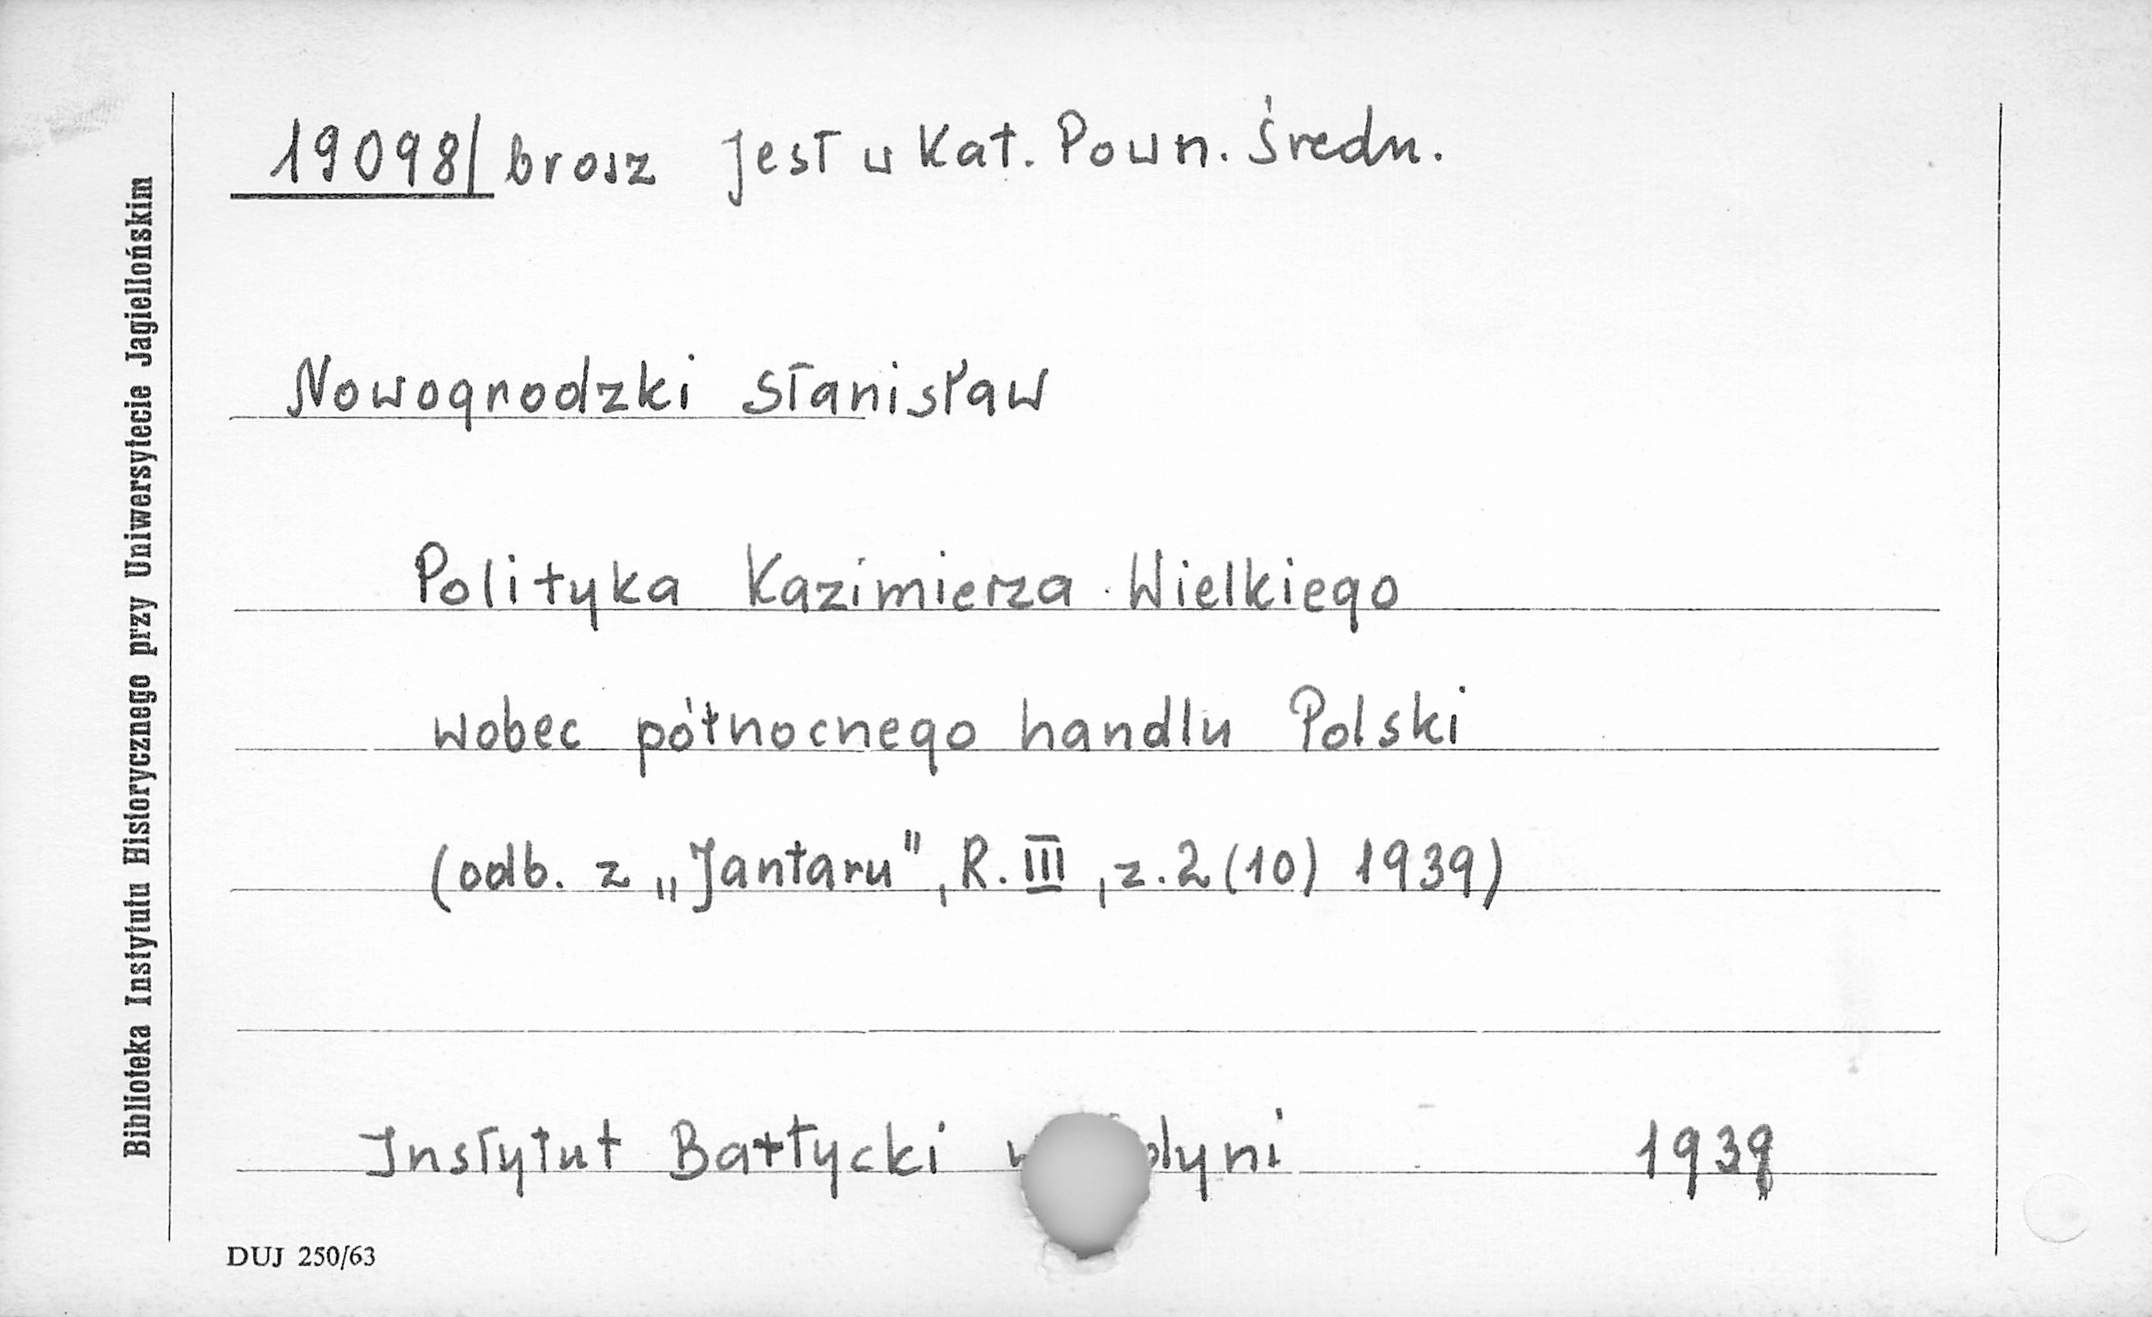 19098/brosz jest w Kat. Pown. Średn.
Nowogrodzki Stanisław
Polityka Kazimierza Wielkiego
wobec północnego handlu Polski
(odb. z „Jantaru", R. III, z. 2 (10) 1939)
Instytut Bałtycki w dyni 1939
DUJ 250/63
Biblioteka Instytutu Historycznego przy Uniwersytecie Jagiellońskim